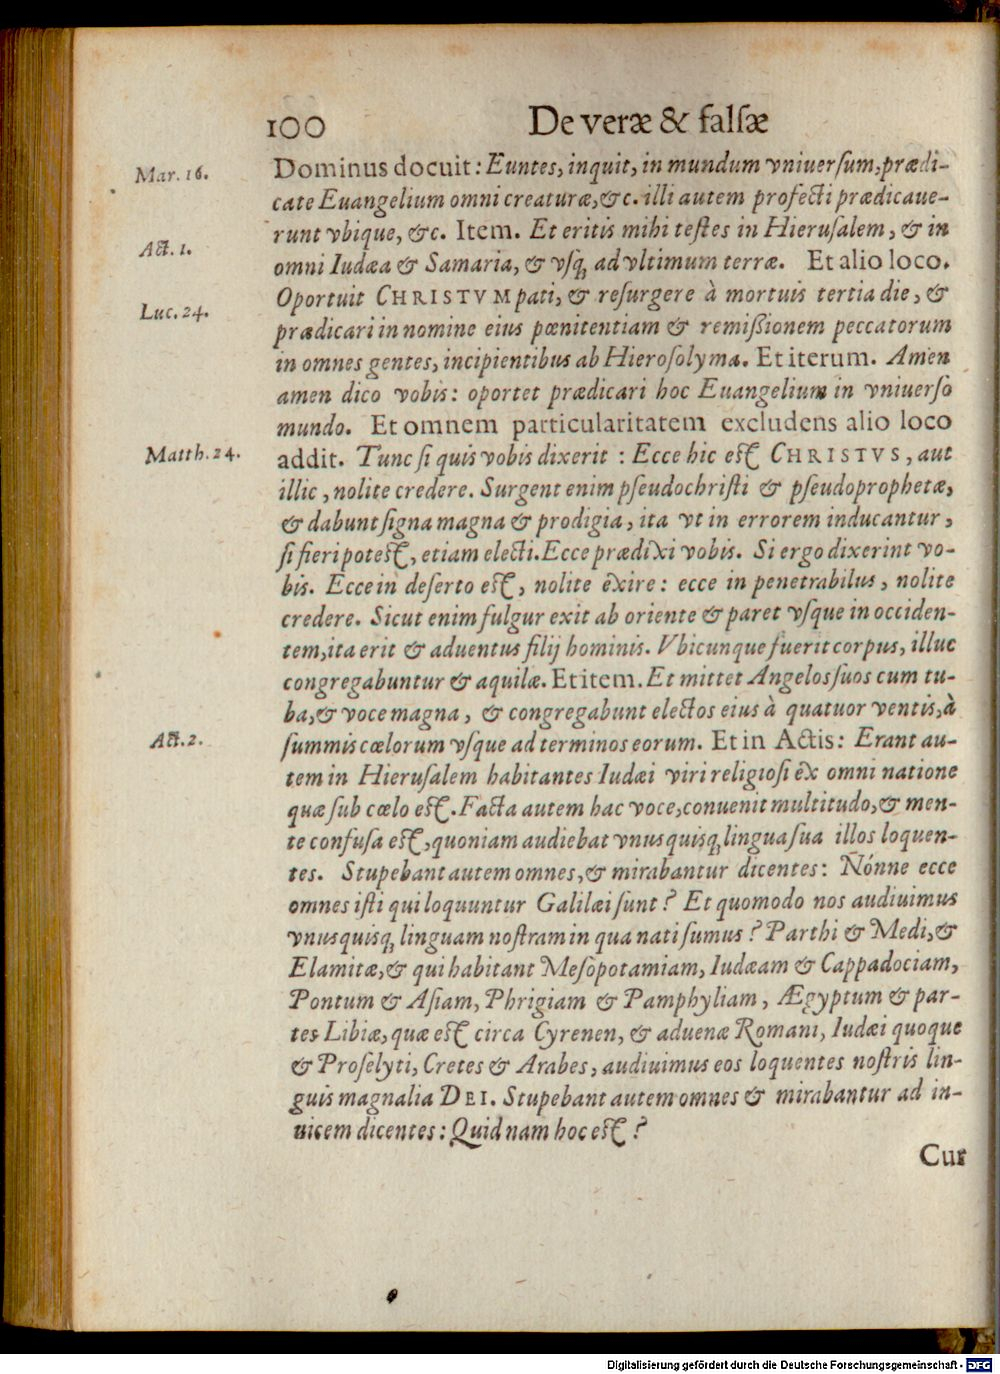 100 De veræ & falsæ
Mar. 16.
Dominus docuit: Euntes, inquit, in mundum vniuersum, prædi-
cate Euangelium omni creaturæ, &c. illi autem profecti prædicaue-
runt vbique, &c. Item. Et eritis mihi testes in Hierusalem, & in
Act. 1.
omni Iudæa & Samaria, & vsq; ad vltimum terræ. Et alio loco.
Luc. 24.
Oportuit CHRISTVM pati, & resurgere à mortuis tertia die, &
prædicari in nomine eius pœnitentiam & remißionem peccatorum
in omnes gentes, incipientibus ab Hierosolyma. Et iterum. Amen
amen dico vobis: oportet prædicari hoc Euangelium in vniuerso
mundo. Et omnem particularitatem excludens alio loco
Matth. 24.
addit. Tunc si quis vobis dixerit : Ecce hic est CHRISTVS, aut
illic, nolite credere. Surgent enim pseudochristi & pseudoprophetæ,
& dabunt signa magna & prodigia, ita vt in errorem inducantur,
si fieri potest, etiam electi. Ecce prædixi vobis. Si ergo dixerint vo-
bis. Ecce in deserto est, nolite exire: ecce in penetrabilus, nolite
credere. Sicut enim fulgur exit ab oriente & paret vsque in occiden-
tem, ita erit & aduentus filij hominis. Vbicunque fuerit corpus, illuc
congregabuntur & aquilæ. Et item. Et mittet Angelos suos cum tu-
ba, & voce magna, & congregabunt electos eius à quatuor ventis, à
Act. 2.
summis cœlorum vsque ad terminos eorum. Et in Actis: Erant au-
tem in Hierusalem habitantes Iudæi viri religiosi ex omni natione
quæ sub cœlo est. Facta autem hac voce, conuenit multitudo, & men-
te confusa est, quoniam audiebat vnusquisq; lingua sua illos loquen-
tes. Stupebant autem omnes, & mirabantur dicentes: Nónne ecce
omnes isti qui loquuntur Galilæi sunt? Et quomodo nos audiuimus
vnusquisq; linguam nostram in qua nati sumus? Parthi & Medi, &
Elamitæ, & qui habitant Mesopotamiam, Iudæam & Cappadociam,
Pontum & Asiam, Phrigiam & Pamphyliam, Ægyptum & par-
tes Libiæ, quæ est circa Cyrenen, & aduenæ Romani, Iudæi quoque
& Proselyti, Cretes & Arabes, audiuimus eos loquentes nostris lin-
guis magnalia DEI. Stupebant autem omnes & mirabantur ad in-
uicem dicentes: Quidnam hoc est?
Cur
Digitalisierung gefördert durch die Deutsche Forschungsgemeinschaft - DFG